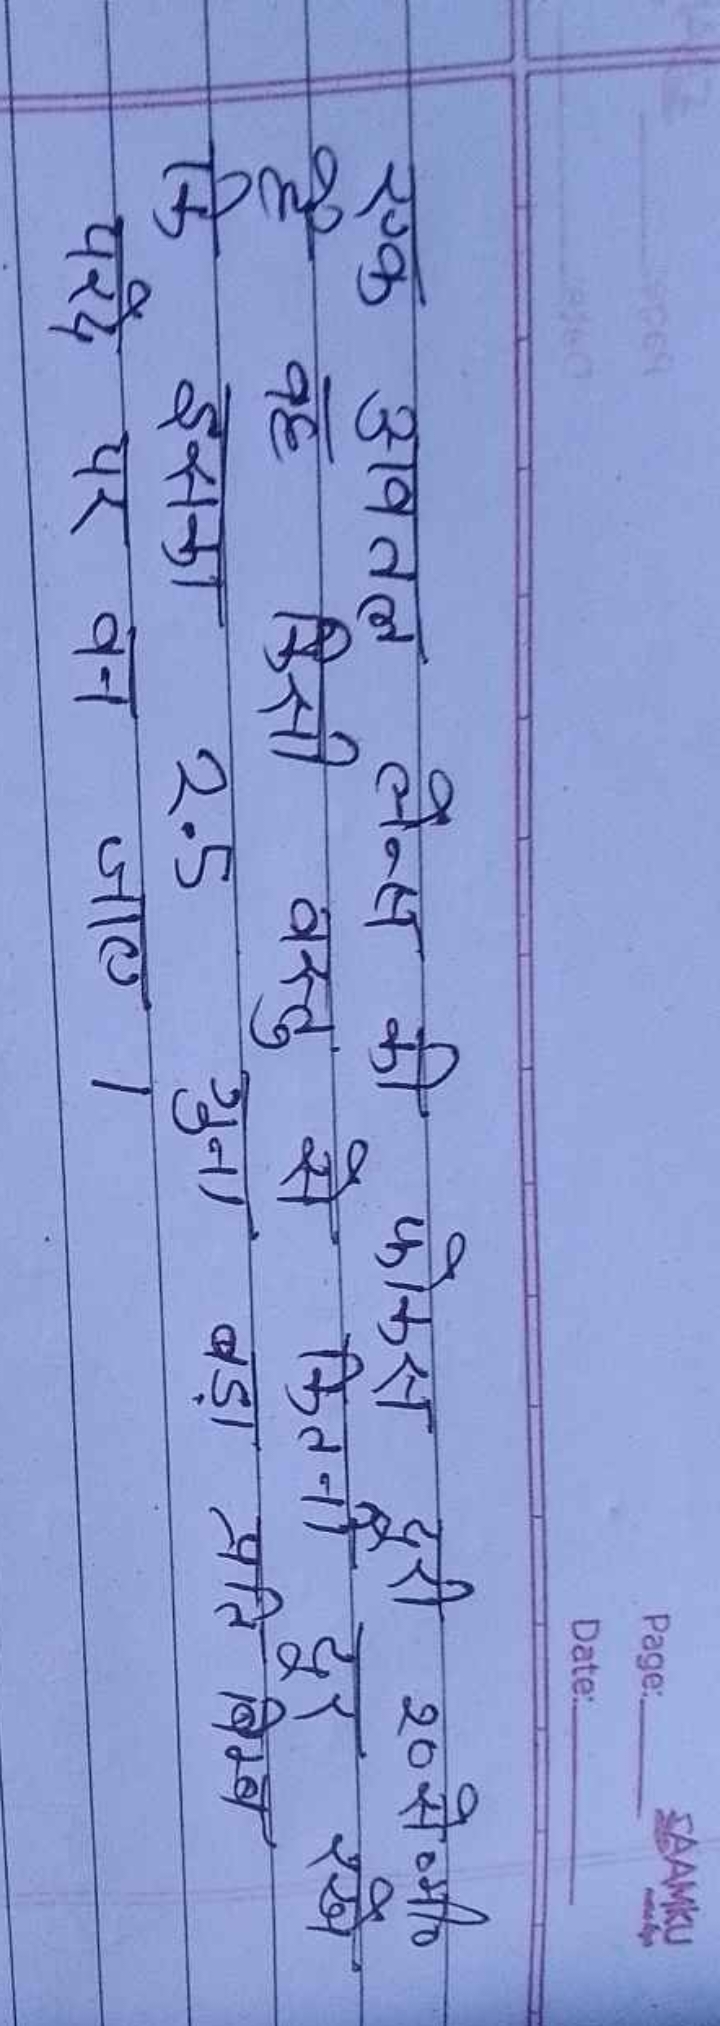 Page:
SAAMKU
Date:
एक उावतल लेन्स की फोकस दुरी 20 से०मी०
है वह किसी वस्तु से कितनी दूर रखे
कि इसका 2.5 गुना बड़ा प्रति बिम्ब
परदे पर बन जाए ।